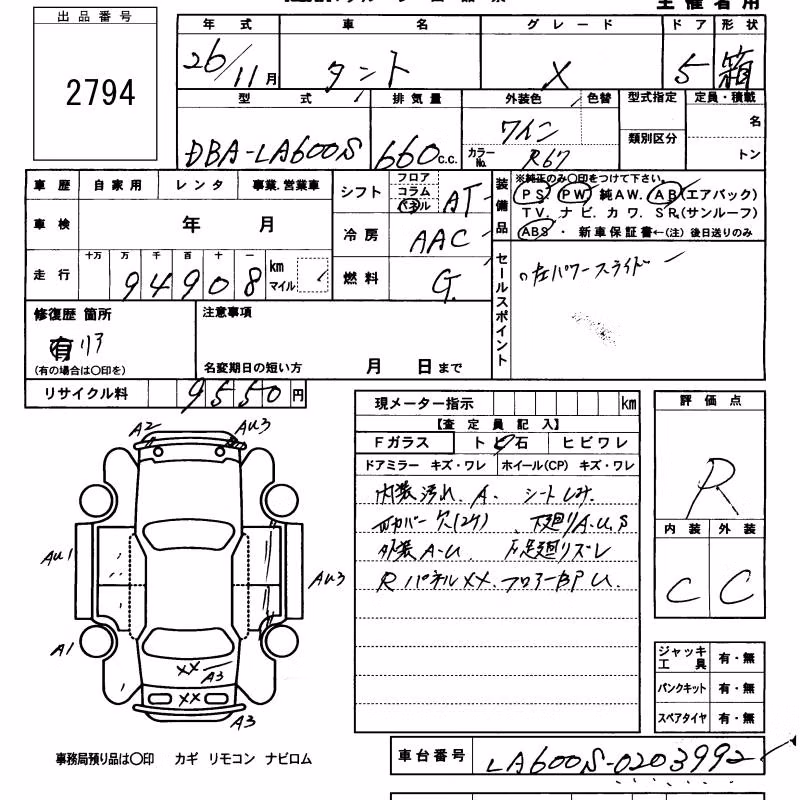 主催者用
出品番号
2794
年式 車名 グレード ドア 形状
26/11月 タント X 5 箱
型式 排気量 外装色 色替 型式指定 定員・積載
DBA-LA600S 660c.c. ワイン 類別区分 名
カラーNo. R67 トン
車歴 自家用 レンタ 事業.営業車
車検 年 月
走行 十万 万 千 百 十 一 km マイル
94908
シフト フロア コラム パネル AT
冷房 AAC
燃料 G.
装備品 ※純正のみ○印をつけて下さい。
PS PW 純AW. AB(エアバック)
TV. ナビ. カワ. SR.(サンルーフ)
ABS ・ 新車保証書←(注) 後日送りのみ
セールスポイント
左パワースライド
修復歴 箇所
有 リア
(有の場合は○印を)
注意事項
名変期日の短い方 月 日まで
リサイクル料 9550円
現メーター指示 km
【査定員記入】
Fガラス トビ石 ヒビワレ
ドアミラー キズ・ワレ ホイール(CP) キズ・ワレ
内装汚れ.A. シートしみ.
カバー穴(2ケ) 下廻りA.U.S
外装A-U. 足廻りズレ
RパネルXX. フロアー U.
評価点
R
内装 外装
C C
A2 AU3
AU1
AU3
A1
XX A3
XX
A3
ジャッキ工具 有・無
パンクキット 有・無
スペアタイヤ 有・無
事務局預り品は○印 カギ リモコン ナビロム
車台番号 LA600S-0203992